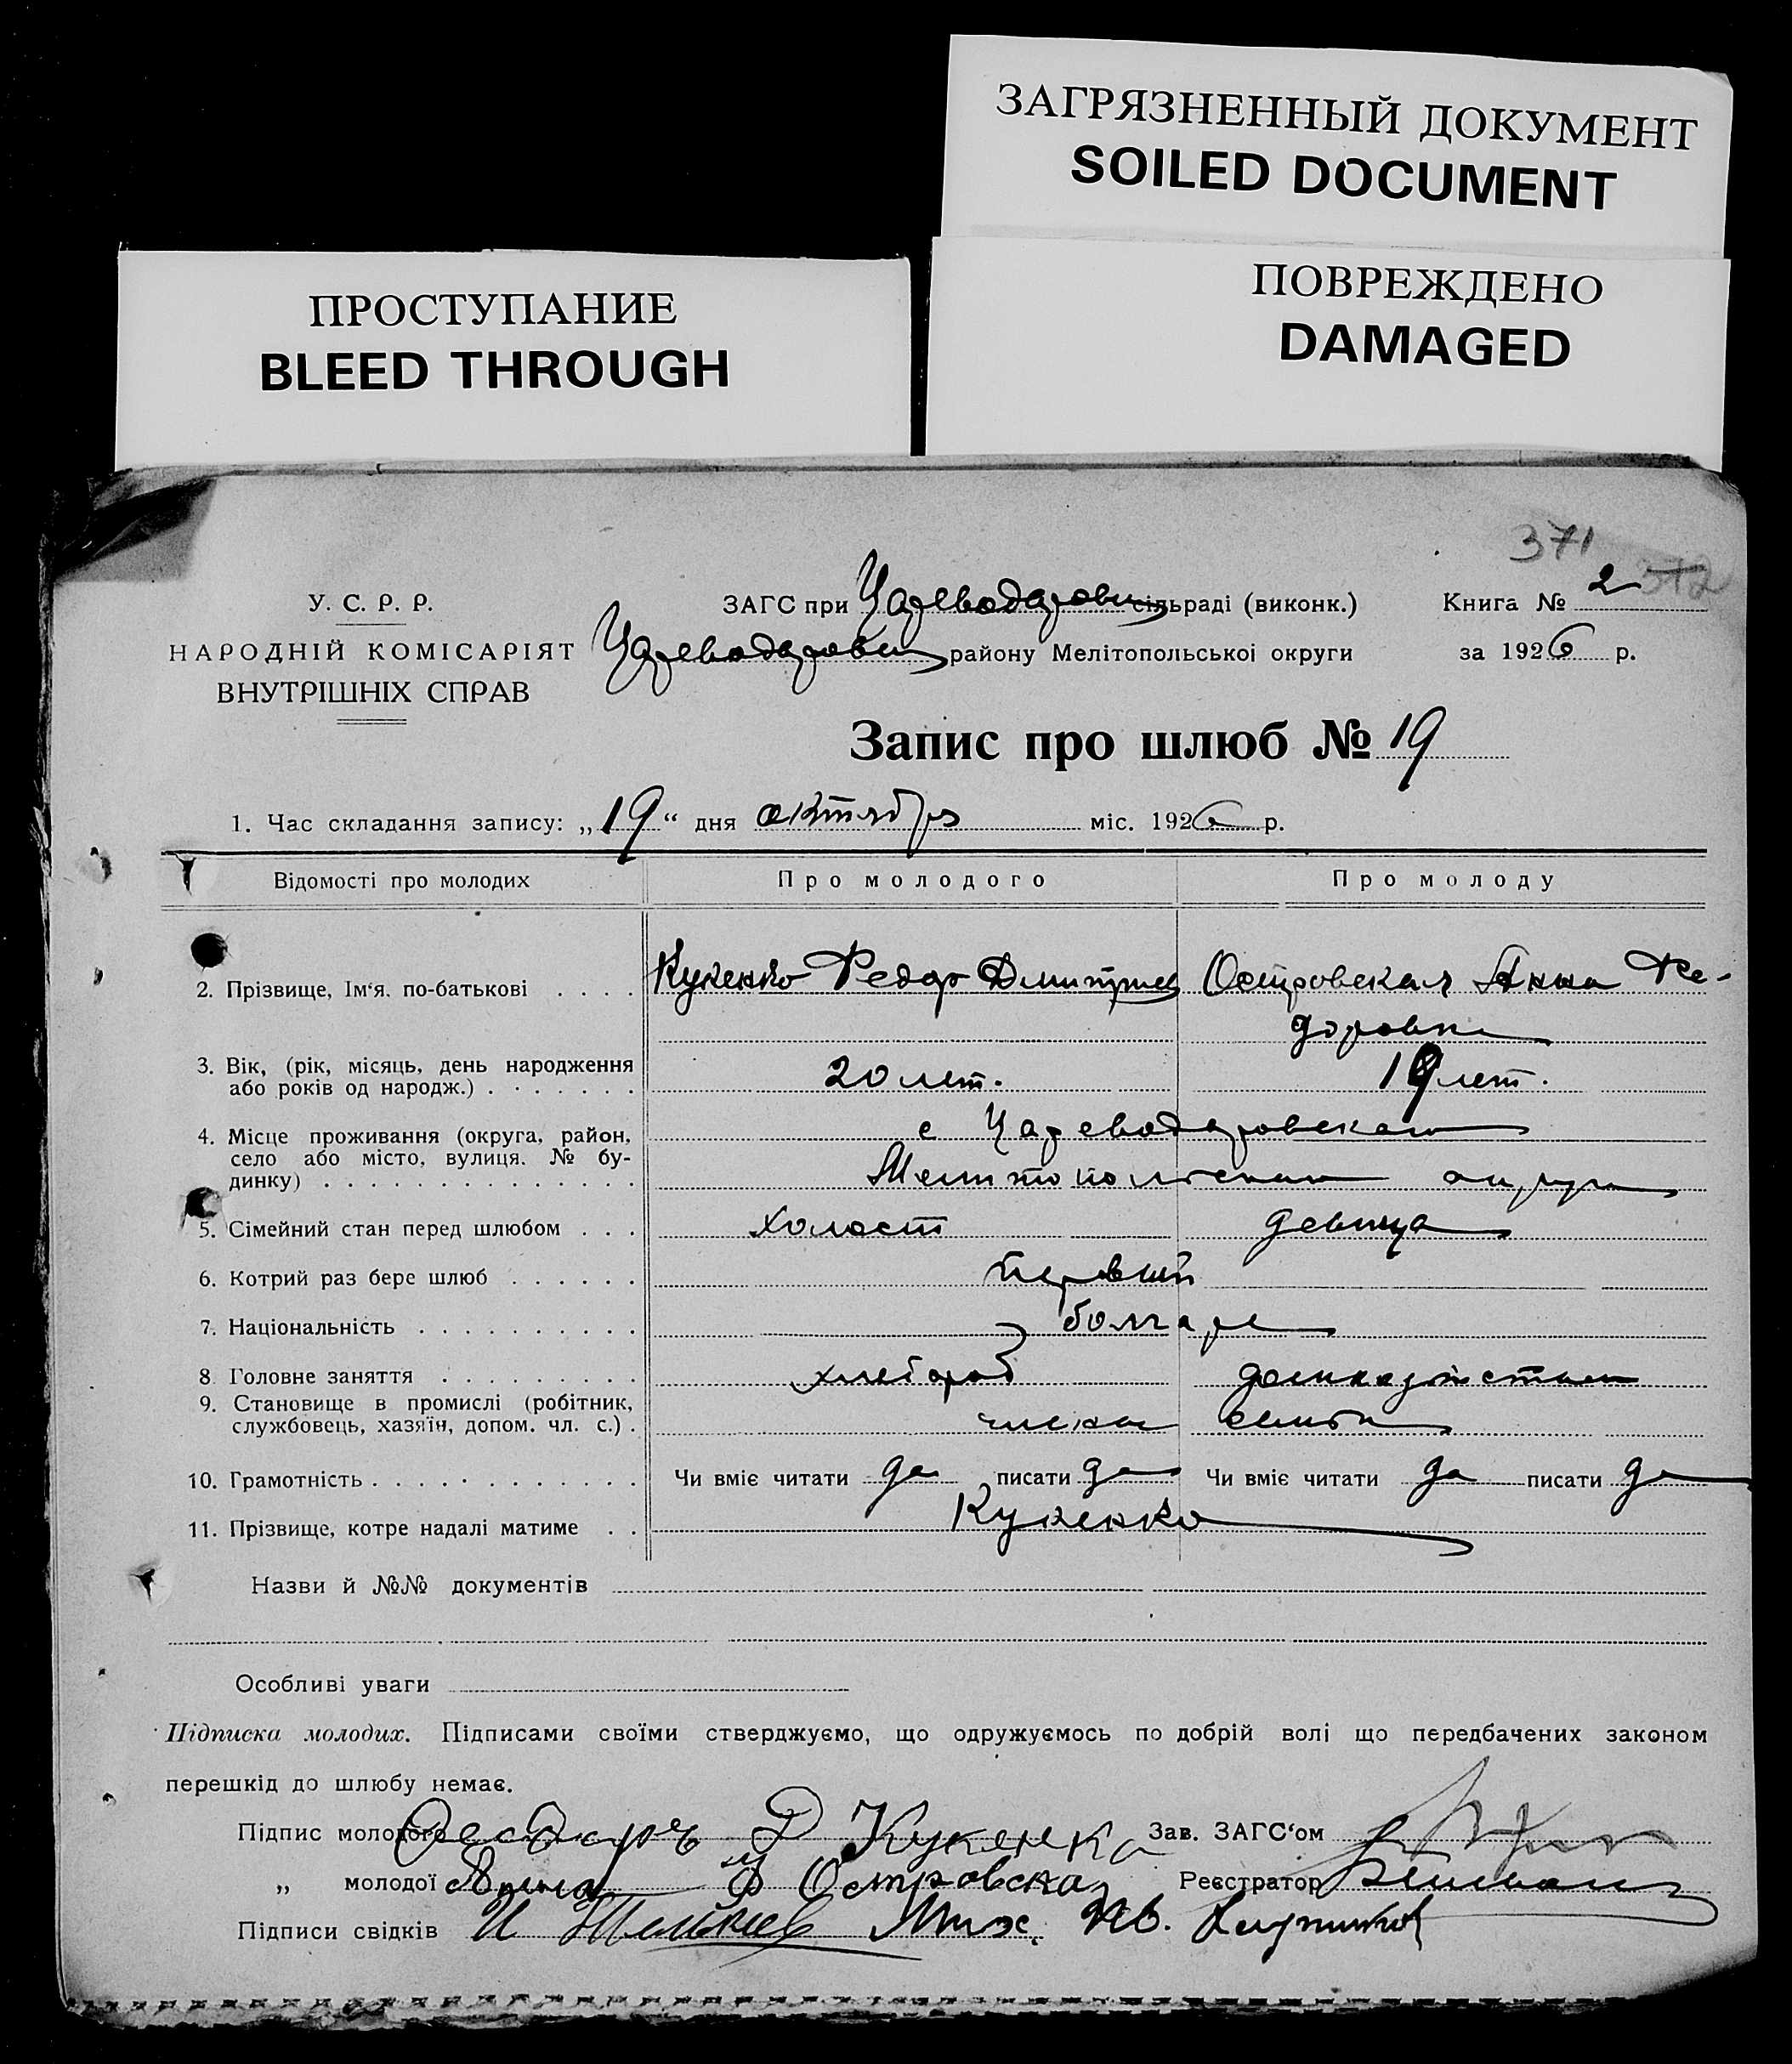 ЗАГРЯЗНЕННЫЙ ДОКУМЕНТ
SOILED DOCUMENT
ПРОСТУПАНИЕ
BLEED THROUGH
ПОВРЕЖДЕНО
DAMAGED
371
372
У. С. Р. Р.
НАРОДНІЙ КОМІСАРІЯТ
ВНУТРІШНІХ СПРАВ
ЗАГС при Цареводаровск сільраді (виконк.) Книга № 2
Цареводаровск району Мелітопольської округи за 1926 р.
Запис про шлюб № 19
1. Час складання запису: „19“ дня октября міс. 1926 р.
Відомості про молодих Про молодого Про молоду
2. Прізвище, Ім‘я. по-батькові Кукенко Федор Дмитриев Островская Анна Фе-
доровна
3. Вік, (рік, місяць, день народження
або років од народж.) 20 лет. 19 лет.
4. Місце проживання (округа, район, с Цареводаровского
село або місто, вулиця. № бу-
динку) Мелитопольского округа
5. Сімейний стан перед шлюбом холост девица
6. Котрий раз бере шлюб первый
7. Національність болгаре
8 Головне заняття хлебороб домхозяйством
9. Становище в промислі (робітник,
службовець, хазяїн, допом. чл. с.) члены семьи
10. Грамотність Чи вміє читати да писати да Чи вміє читати да писати да
11. Прізвище, котре надалі матиме Кукенко
Назви й №№ документів
Особливі уваги
Підписка молодих. Підписами своїми стверджуємо, що одружуємось по добрій волі що передбачених законом
перешкід до шлюбу немає.
Підпис молодого Феодоръ Д Кукенко Зав. ЗАГС‘ом
„ молодої Анна Ф Островская Реєстратор
Підписи свідків И Мих. Ив.